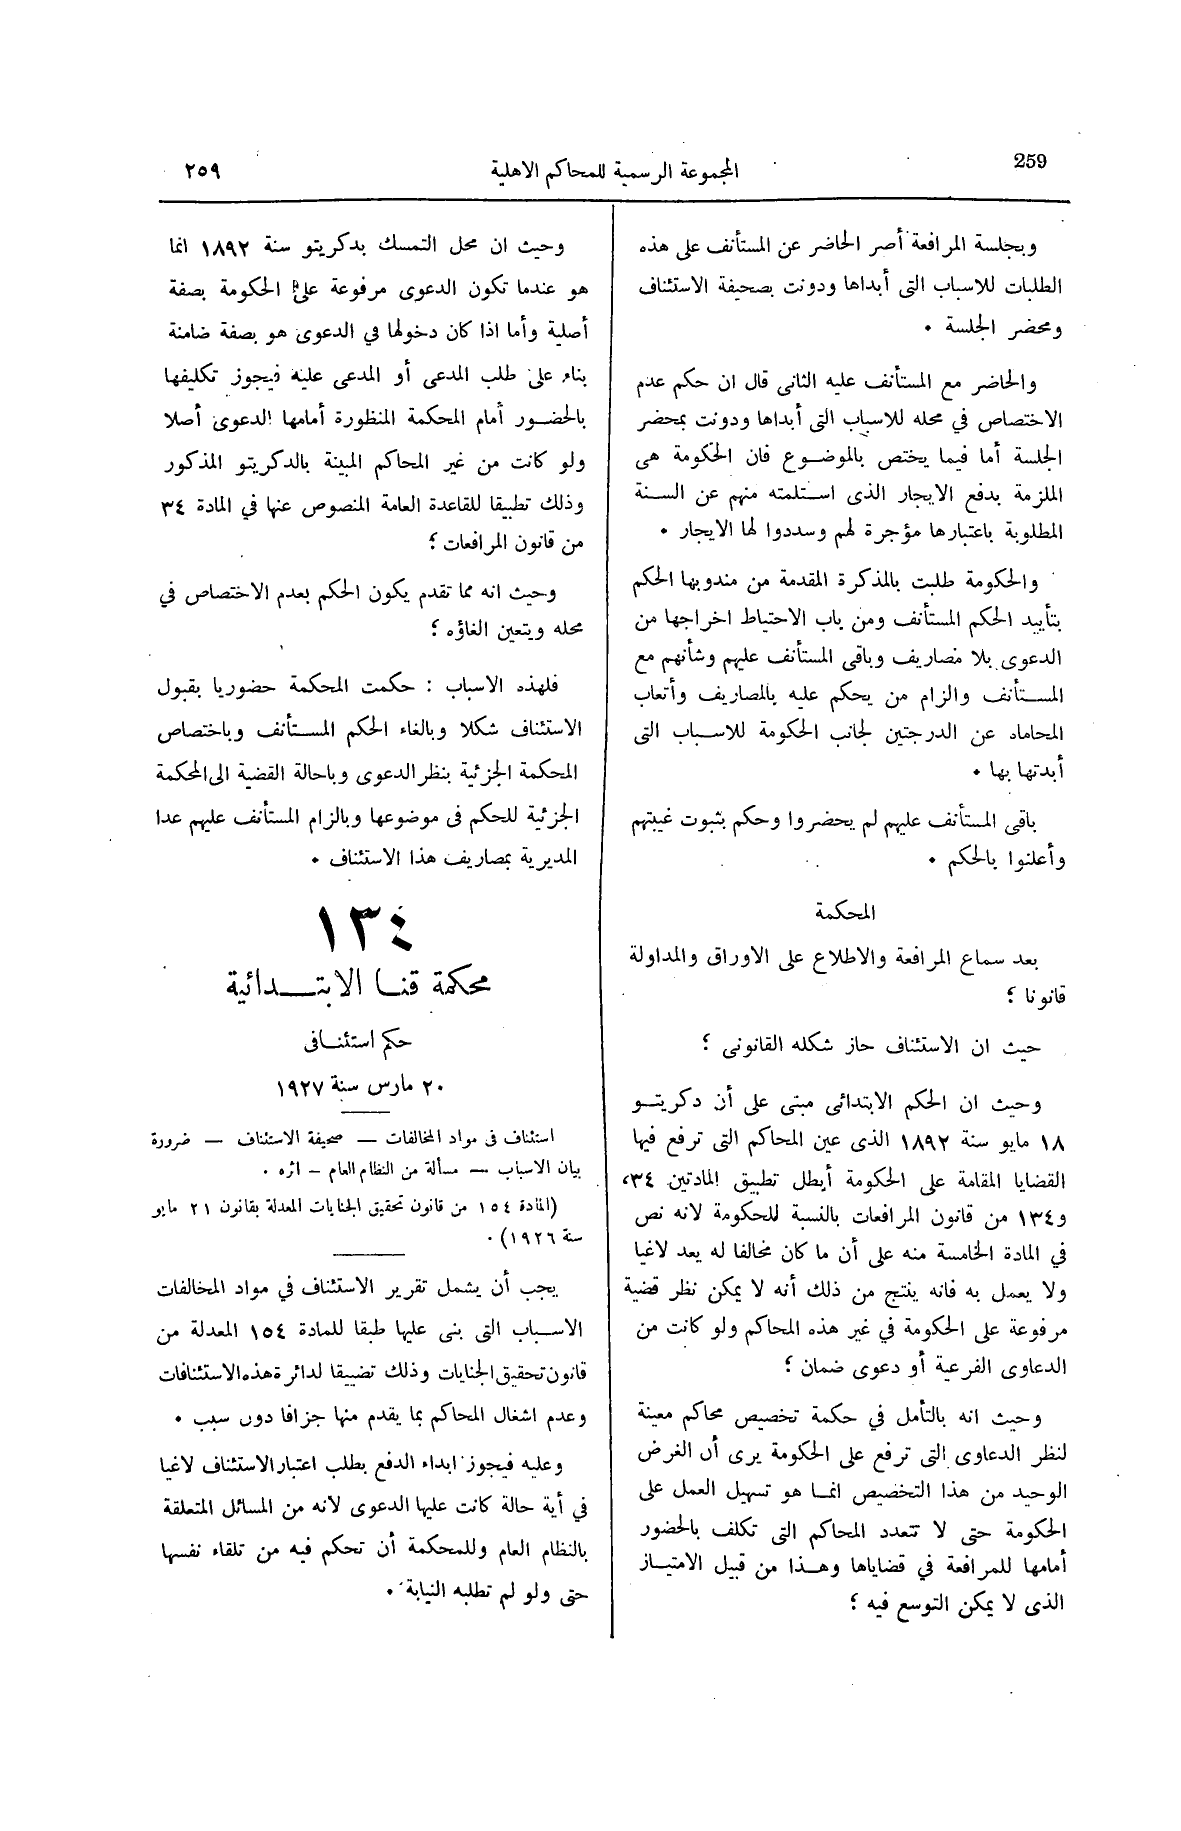 259
المجموعة الرسمية للمحاكم الاهلية
٢٥٩
وبجلسة المرافعة أصر الحاضر عن المستأنف على هذه
الطلبات للاسباب التى أبداها ودونت بصحيفة الاستئناف
ومحضر الجلسة •
والحاضر مع المستأنف عليه الثانى قال ان حكم عدم
الاختصاص في محله للاسباب التى أبداها ودونت بمحضر
الجلسة أما فيما يختص بالموضوع فان الحكومة هى
الملزمة بدفع الايجار الذى استلمته منهم عن السنة
المطلوبة باعتبارها مؤجرة لهم وسددوا لها الايجار •
والحكومة طلبت بالمذكرة المقدمة من مندوبها الحكم
بتأييد الحكم المستأنف ومن باب الاحتياط اخراجها من
الدعوى بلا مصاريف وباقى المستأنف عليهم وشأنهم مع
المستأنف والزام من يحكم عليه بالمصاريف وأتعاب
المحاماه عن الدرجتين لجانب الحكومة للاسباب التى
أبدتها بها •
باقى المستأنف عليهم لم يحضروا وحكم بثبوت غيبتهم
وأعلنوا بالحكم •
المحكمة
بعد سماع المرافعة والاطلاع على الاوراق والمداولة
قانونا ؛
حيث ان الاستئناف حاز شكله القانونى ؛
وحيث ان الحكم الابتدائى مبنى على أن دكريتو
١٨ مايو سنة ١٨٩٢ الذى عين المحاكم التى ترفع فيها
القضايا المقامة على الحكومة أبطل تطبيق المادتين ٣٤،
و١٣٤ من قانون المرافعات بالنسبة للحكومة لانه نص
في المادة الخامسة منه على أن ما كان مخالفا له يعد لاغيا
ولا يعمل به فانه ينتج من ذلك أنه لا يمكن نظر قضية
مرفوعة على الحكومة في غير هذه المحاكم ولو كانت من
الدعاوى الفرعية أو دعوى ضمان ؛
وحيث انه بالتأمل في حكمة تخصيص محاكم معينة
لنظر الدعاوى التى ترفع على الحكومة يرى أن الغرض
الوحيد من هذا التخصيص انما هو تسهيل العمل على
الحكومة حتى لا تتعدد المحاكم التى تكلف بالحضور
أمامها للمرافعة في قضاياها وهذا من قبيل الامتياز
الذى لا يمكن التوسع فيه ؛
وحيث ان محل التمسك بدكريتو سنة ١٨٩٢ انما
هو عندما تكون الدعوى مرفوعة على الحكومة بصفة
أصلية وأما اذا كان دخولها في الدعوى هو بصفة ضامنة
بناء على طلب المدعى أو المدعى عليه فيجوز تكليفها
بالحضور أمام المحكمة المنظورة أمامها الدعوى أصلا
ولو كانت من غير المحاكم المبينة بالدكريتو المذكور
وذلك تطبيقا للقاعدة العامة المنصوص عنها في المادة ٣٤
من قانون المرافعات ؛
وحيث انه مما تقدم يكون الحكم بعدم الاختصاص في
محله ويتعين الغاؤه ؛
فلهذه الاسباب : حكمت المحكمة حضوريا بقبول
الاستئناف شكلا وبالغاء الحكم المستأنف وباختصاص
المحكمة الجزئية بنظر الدعوى وباحالة القضية الى المحكمة
الجزئية للحكم فى موضوعها وبالزام المستأنف عليهم عدا
المديرية بمصاريف هذا الاستئناف •
١٣٤
محكمة قنا الابتدائية
حكم استئنافى
٢٠ مارس سنة ١٩٢٧
استئناف فى مواد المخالفات — صحيفة الاستئناف — ضرورة
بيان الاسباب — مسألة من النظام العام — اثره •
(المادة ١٥٤ من قانون تحقيق الجنايات المعدلة بقانون ٢١ مايو
سنة ١٩٢٦) •
يجب أن يشمل تقرير الاستئناف في مواد المخالفات
الاسباب التى بنى عليها طبقا للمادة ١٥٤ المعدلة من
قانون تحقيق الجنايات وذلك تضييقا لدائرة هذه الاستئنافات
وعدم اشغال المحاكم بما يقدم منها جزافا دون سبب •
وعليه فيجوز ابداء الدفع بطلب اعتبار الاستئناف لاغيا
في أية حالة كانت عليها الدعوى لانه من المسائل المتعلقة
بالنظام العام وللمحكمة أن تحكم فيه من تلقاء نفسها
حتى ولو لم تطلبه النيابة •